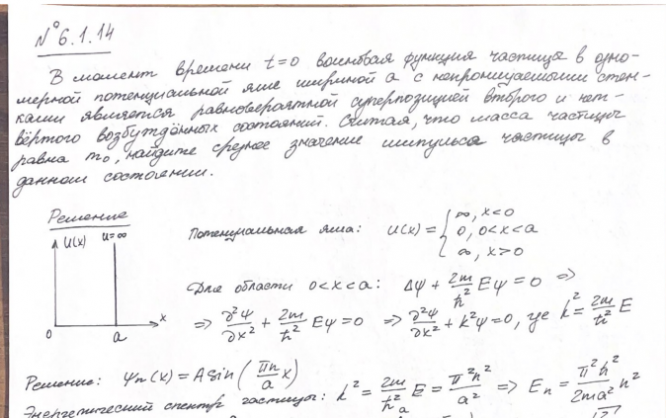 № 6.1.14
В момент времени t=0 волновая функция частицы в одно-
мерной потенциальной яме шириной a с непроницаемыми стен-
ками является равновероятной суперпозицией второго и чет-
вёртого возбуждённых состояний. Считая, что масса частицы
равна m₀, найдите среднее значение импульса частицы в
данном состоянии.
Решение
U(x) U=∞
0 a x
Потенциальная яма: U(x) = { ∞, x<0
0, 0<x<a
∞, x>0
Для области 0<x<a: Δψ + 2m/ħ² Eψ = 0 ⇒
⇒ ∂²ψ/∂x² + 2m/ħ² Eψ = 0 ⇒ ∂²ψ/∂x² + k²ψ = 0, где k² = 2m/ħ² E
Решение: ψₙ(x) = A sin(πn/a x)
Энергетический спектр частицы: k² = 2m/ħ² E = π²n²/a² ⇒ Eₙ = π²ħ²/2ma² n²